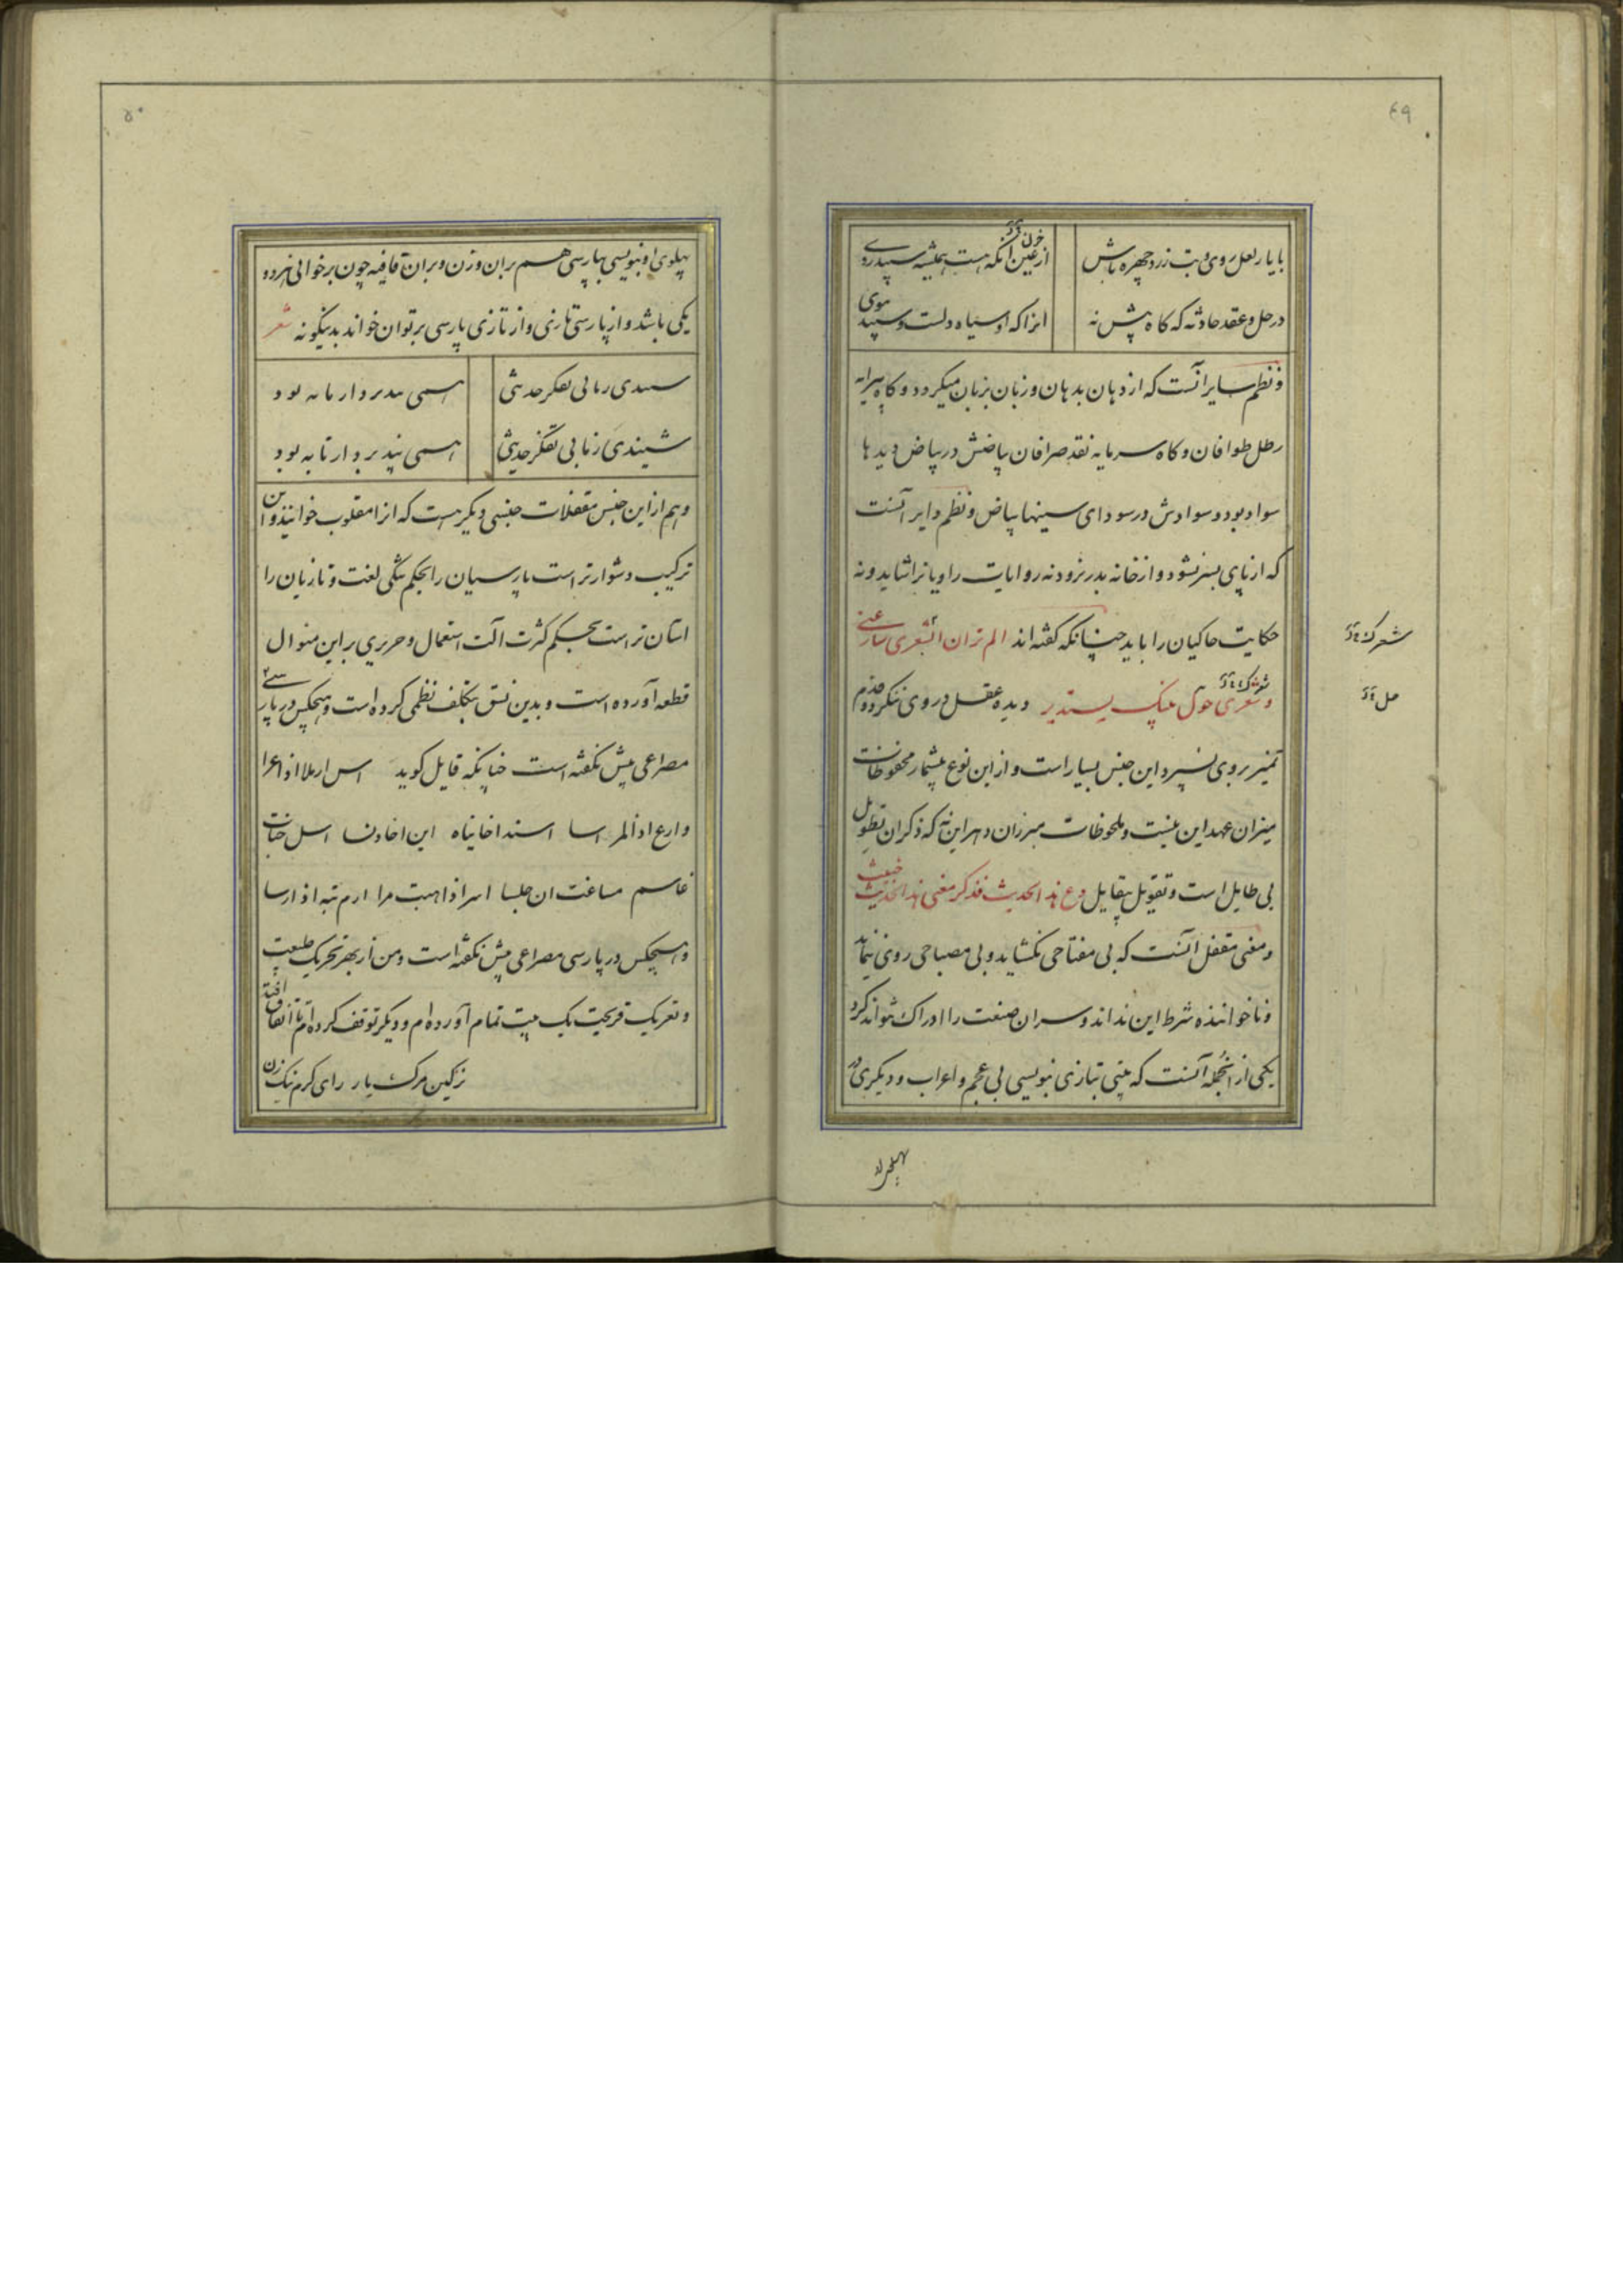 ٤٩
با یار لعل روی و بت زرد چهره باش
از عین آنکه هست همیشه سپید روی
در حل و عقد حادثه که کاه پیش نه
آنرا که او سیاه دلست و سپید موی
و نظم سایر آنست که از دهان بدهان و زبان بزبان میکردد و کاه پیرایه
رطل طوافان و کاه سرمایه نقد صرافان بیاضش در بیاض دیدها
سواد بود و سوادش در سودای سینها بیاض و نظم دایر آنست
که از پای بسر نشود و از خانه بدر نرود نه روایات راویانرا شاید و نه
حکایت حاکیان را باید چنانکه کفته اند الم تران الشعری سار عنی
و شعری حول بیتک یستدیر دیده عقل در وی ننکرد و قدم
تمیز بروی نسپرد و این جنس بسیار است و از این نوع بیشمار محفوظات
میزان عهد این نیست و ملحوظات مبرزان دهر این نه که ذکر ان تطویل
بی طایل است و تقویل بیقایل دع هذا الحدیث فذکر معنی هذا الحدیث خبیث
و معنی مقفل آنست که بی مفتاحی نکشاید و بی مصباحی روی ننماید
و تا خواننده شرط این نداند و سر ان صنعت را ادراک نتواند کرد
یکی از انجمله آنست که بیتی بتازی بنویسی بی عجم و اعراب و دیکری در
٥٠
پهلوی او بنویسی بپارسی هم بران وزن و بران قافیه چون برخوانی هر دو
یکی باشد و از پارسی تازی و از تازی پارسی بر توان خواند بدینکونه شعر
سسدی رمانی تفکر حدیثی
اسمی بدیر و اریابه بود
شنیدی زنابی تفکر حدیثی
اسمی پذیر و ارتابه بود
و هم از این جنس مقفلات جنسی دیکر هست که انرا مقلوب خوانند و این
ترکیب دشوارتر است پارسیان را بحکم تنکی لغت و تازیان را
آسان تر است بحکم کثرت آلت استعمال و حریری بر این منوال
قطعه آورده است و بدین نسق بتکلف نظمی کرده است و هیچکس در پارسی
مصراعی بیش نکفته است چنانکه قایل کوید اس ارملا اذا عرا
وارع اذا المر اسا اسند اخا نباهه ابن اخا دنسا اسل جناب
غاسم مشاغب ان جلسا اسر اذا هبت مرا ارم به اذا رسا
و هیچکس در پارسی مصراعی بیش نکفته است و من از بهر تحریک طبیعت
و تعریک قریحت یک بیت تمام آورده ام و دیکر توقف کرده ام تا اتفاق افتد
ز کین مرک یار رای کرم نیک زن